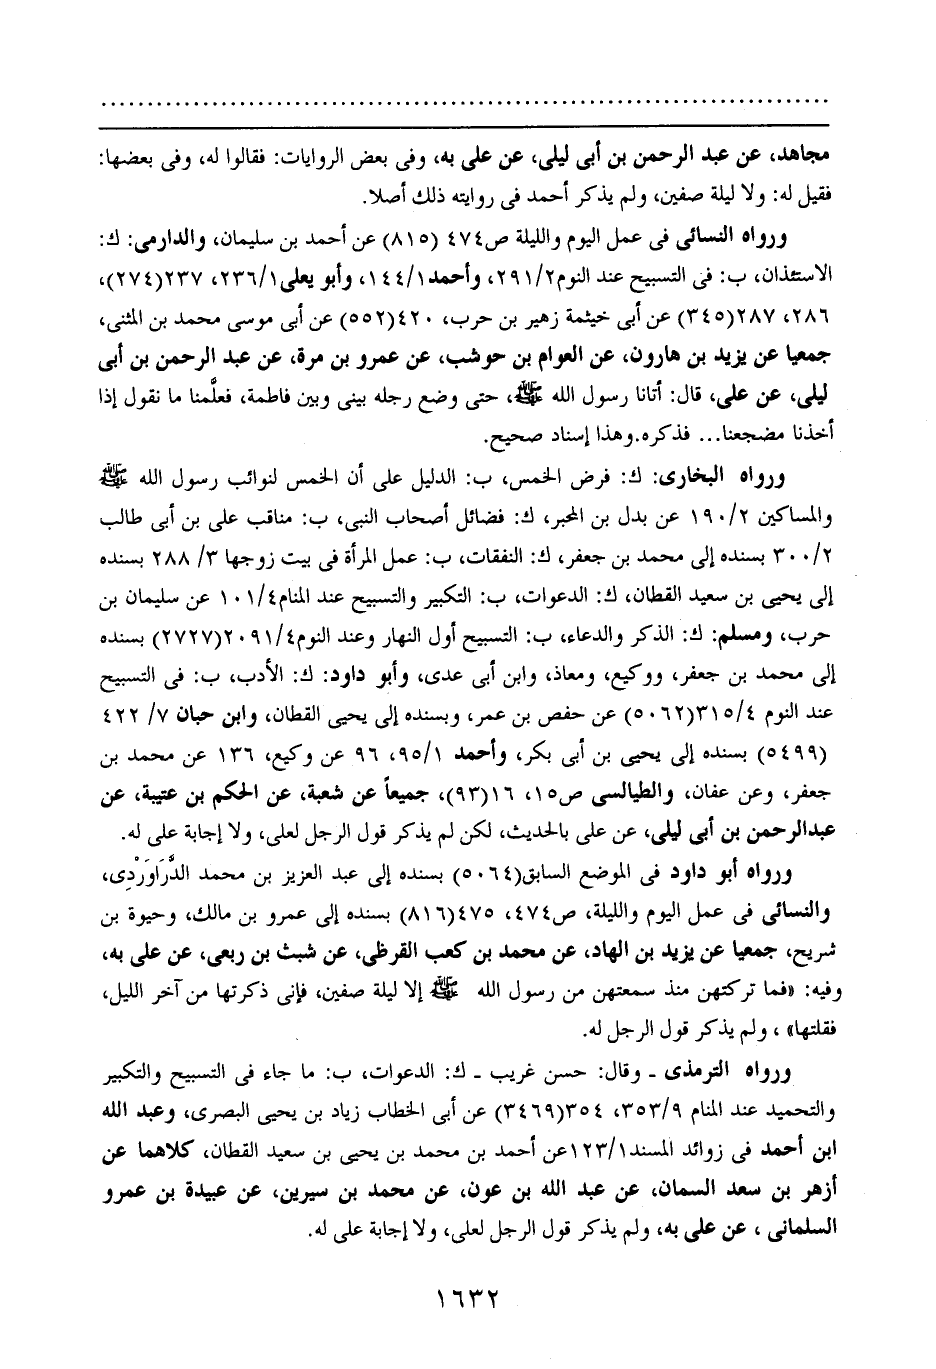 مجاهد، عن عبد الرحمن بن أبى ليلى، عن على به، وفى بعض الروايات: فقالوا له، وفى بعضها:
فقيل له: ولا ليلة صفين، ولم يذكر أحمد فى روايته ذلك أصلا.
ورواه النسائى فى عمل اليوم والليلة ص٤٧٤ (٨١٥) عن أحمد بن سليمان، والدارمى: ك:
الاستئذان، ب: فى التسبيح عند النوم٢/ ٢٩١، وأحمد١/ ١٤٤، وأبو يعلى١/ ٢٣٦، ٢٣٧(٢٧٤)،
٢٨٦، ٢٨٧(٣٤٥) عن أبى خيثمة زهير بن حرب، ٤٢٠(٥٥٢) عن أبى موسى محمد بن المثنى،
جمعيا عن يزيد بن هارون، عن العوام بن حوشب، عن عمرو بن مرة، عن عبد الرحمن بن أبى
ليلى، عن على، قال: أتانا رسول الله ﷺ، حتى وضع رجله بينى وبين فاطمة، فعلَّمنا ما نقول إذا
أخذنا مضجعنا... فذكره.وهذا إسناد صحيح.
ورواه البخارى: ك: فرض الخمس، ب: الدليل على أن الخمس لنوائب رسول الله ﷺ
والمساكين ٢/ ١٩٠ عن بدل بن المحبر، ك: فضائل أصحاب النبى، ب: مناقب على بن أبى طالب
٢/ ٣٠٠ بسنده إلى محمد بن جعفر، ك: النفقات، ب: عمل المرأة فى بيت زوجها ٣/ ٢٨٨ بسنده
إلى يحيى بن سعيد القطان، ك: الدعوات، ب: التكبير والتسبيح عند المنام٤/ ١٠١ عن سليمان بن
حرب، ومسلم: ك: الذكر والدعاء، ب: التسبيح أول النهار وعند النوم٤/ ٢٠٩١(٢٧٢٧) بسنده
إلى محمد بن جعفر، ووكيع، ومعاذ، وابن أبى عدى، وأبو داود: ك: الأدب، ب: فى التسبيح
عند النوم ٤/ ٣١٥(٥٠٦٢) عن حفص بن عمر، وبسنده إلى يحيى القطان، وابن حبان ٧/ ٤٢٢
(٥٤٩٩) بسنده إلى يحيى بن أبى بكر، وأحمد ١/ ٩٥، ٩٦ عن وكيع، ١٣٦ عن محمد بن
جعفر، وعن عفان، والطيالسى ص١٥، ١٦(٩٣)، جميعاً عن شعبة، عن الحكم بن عتيبة، عن
عبدالرحمن بن أبى ليلى، عن على بالحديث، لكن لم يذكر قول الرجل لعلى، ولا إجابة على له.
ورواه أبو داود فى الموضع السابق(٥٠٦٤) بسنده إلى عبد العزيز بن محمد الدَّرَاوَرْدِى،
والنسائى فى عمل اليوم والليلة، ص٤٧٤، ٤٧٥(٨١٦) بسنده إلى عمرو بن مالك، وحيوة بن
شريح، جمعيا عن يزيد بن الهاد، عن محمد بن كعب القرظى، عن شبث بن ربعى، عن على به،
وفيه: «فما تركتهن منذ سمعتهن من رسول الله ﷺ إلا ليلة صفين، فإنى ذكرتها من آخر الليل،
فقلتها» ، ولم يذكر قول الرجل له.
ورواه الترمذى ـ وقال: حسن غريب ـ ك: الدعوات، ب: ما جاء فى التسبيح والتكبير
والتحميد عند المنام ٩/ ٣٥٣، ٣٥٤(٣٤٦٩) عن أبى الخطاب زياد بن يحيى البصرى، وعبد الله
ابن أحمد فى زوائد المسند١/ ١٢٣عن أحمد بن محمد بن يحيى بن سعيد القطان، كلاهما عن
أزهر بن سعد السمان، عن عبد الله بن عون، عن محمد بن سيرين، عن عبيدة بن عمرو
السلمانى ، عن على به، ولم يذكر قول الرجل لعلى، ولا إجابة على له.
١٦٣٢